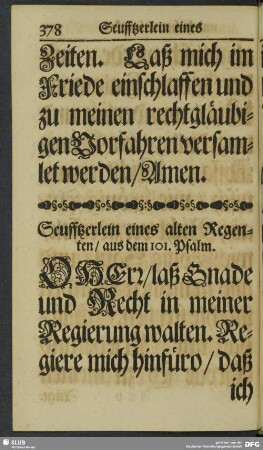 378 Seufftzerlein eines
Zeiten. Laß mich im
Friede einschlaffen und
zu meinen rechtgläubi-
gen Vorfahren versam-
let werden/ Amen.
Seufftzerlein eines alten Regen-
ten/ aus dem 101. Psalm.
O HErr/ laß Gnade
und Recht in meiner
Regierung walten. Re-
giere mich hinfüro/ daß
ich
SLUB
DFG